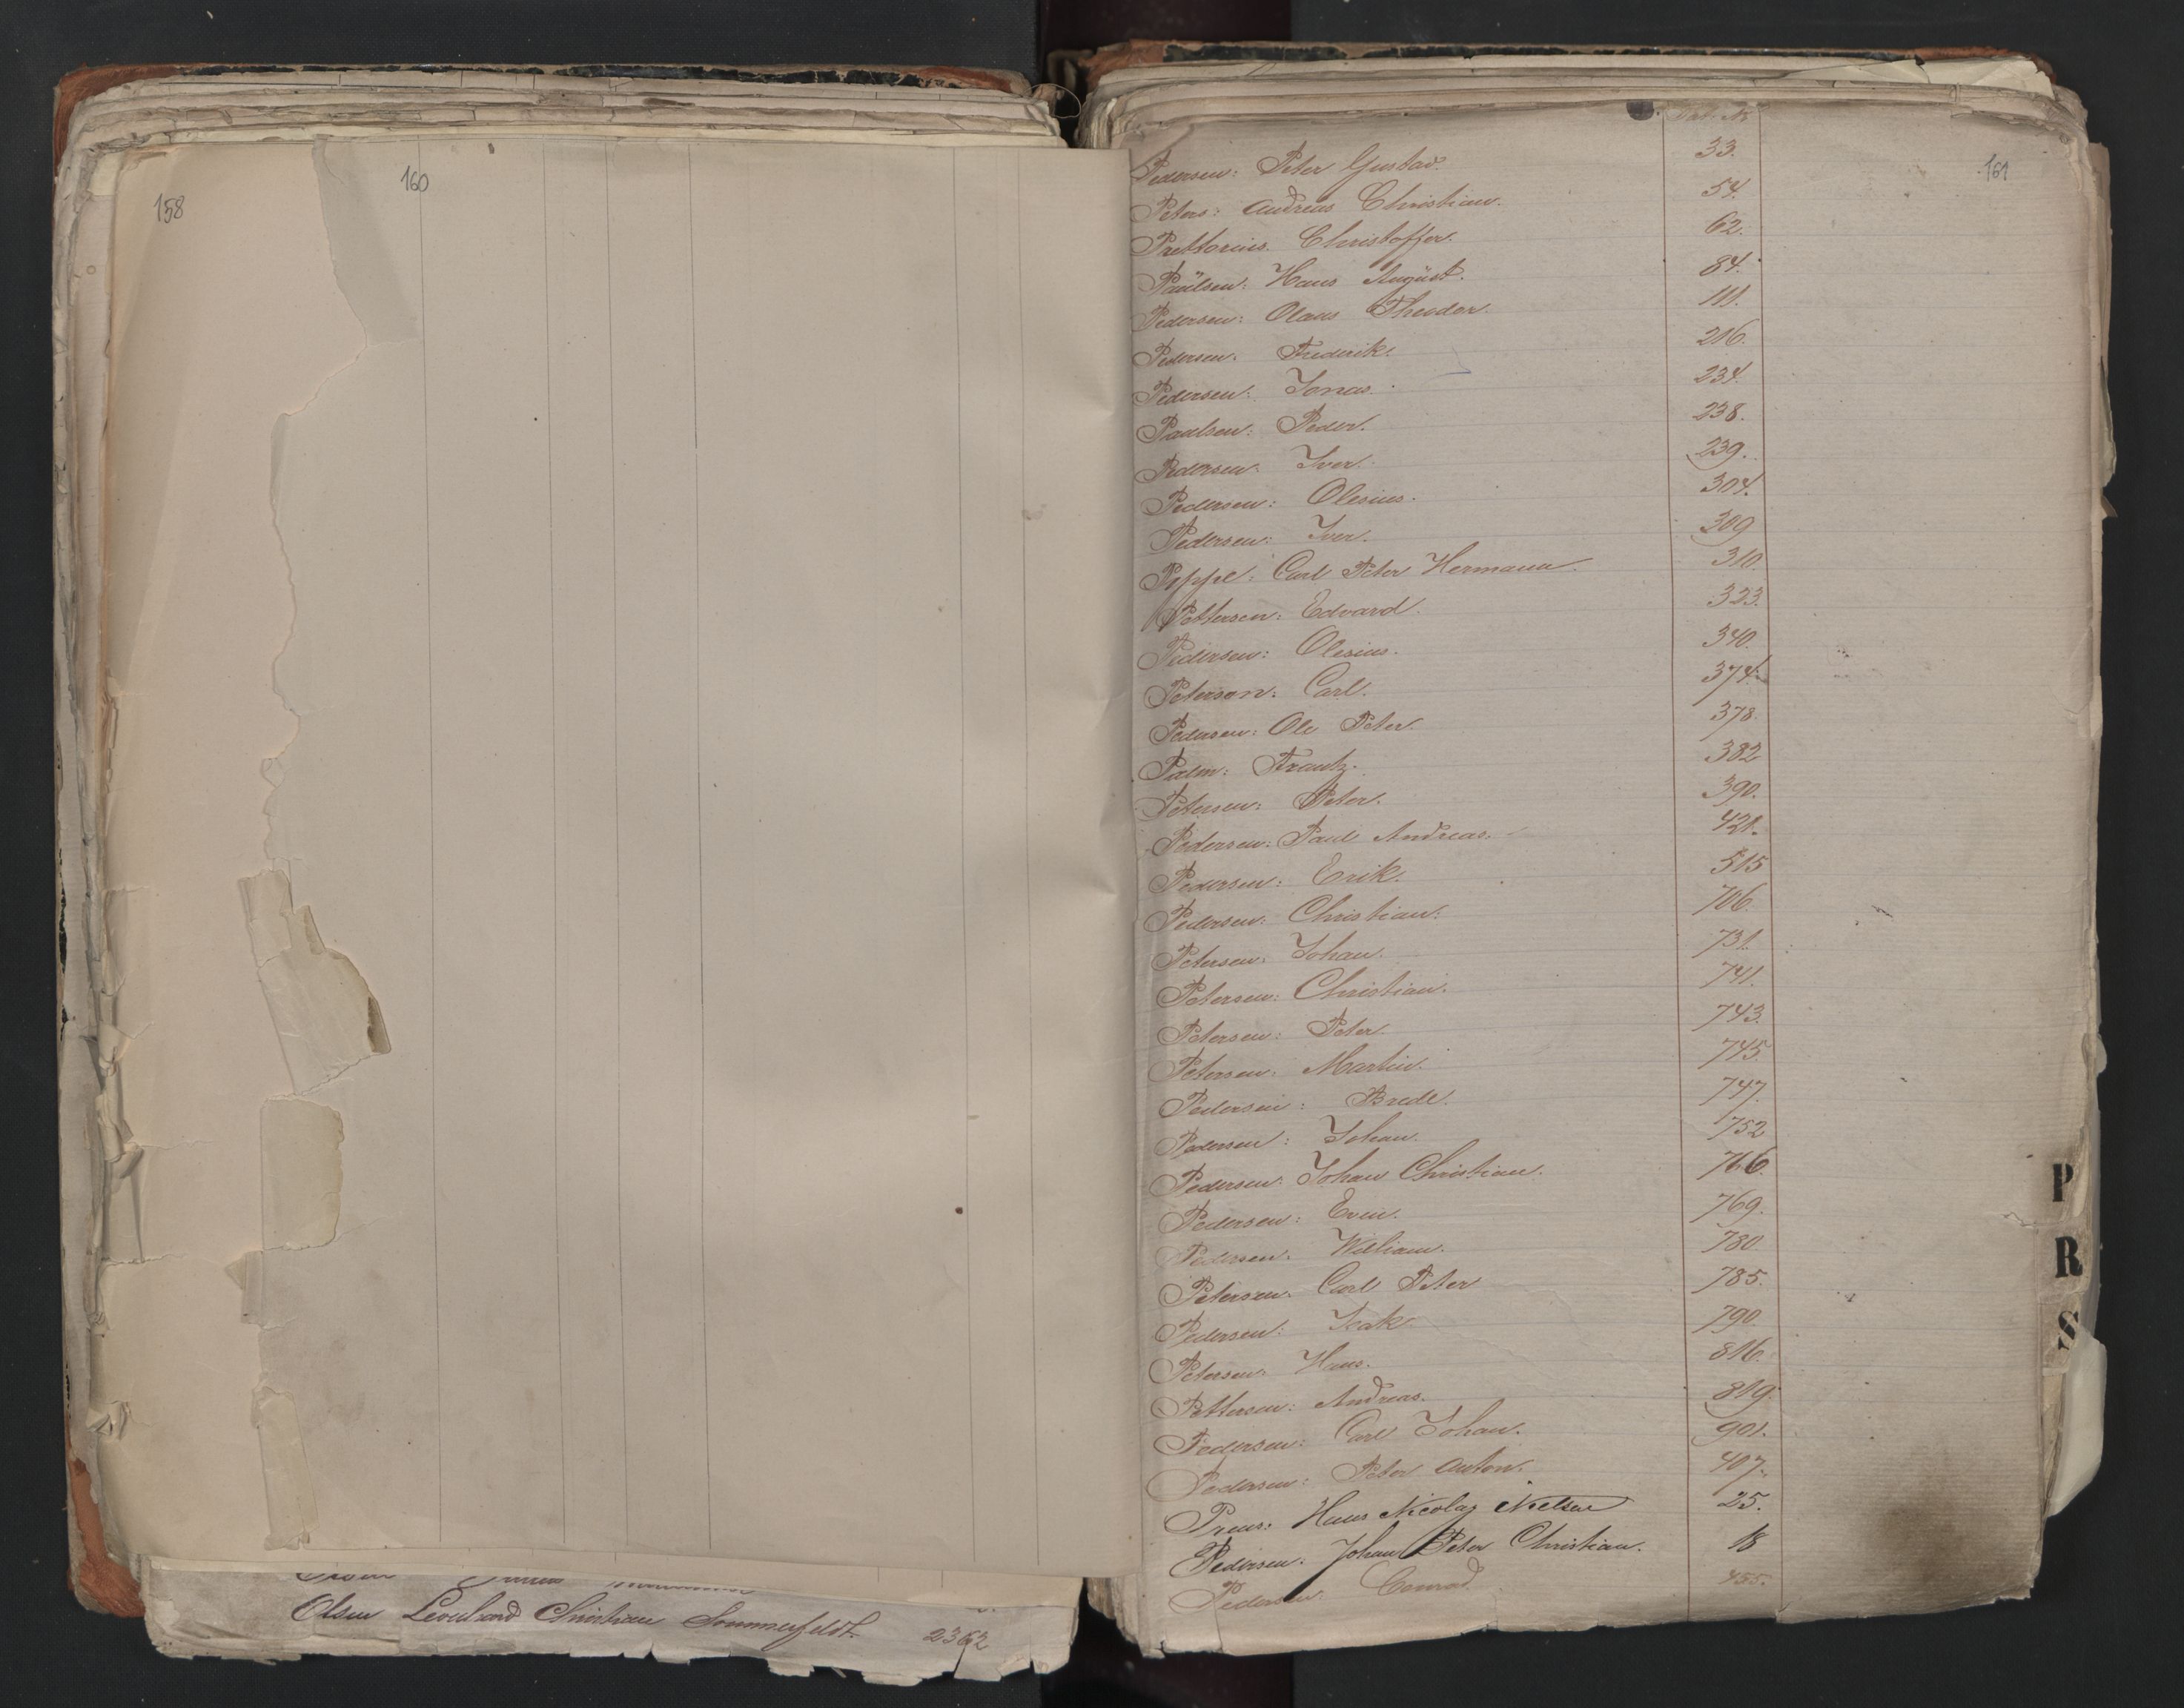 158
160
Olsen Leonhard Christian Sommerfeldt 2362
161
Pedersen: Peter Gustav. 33.
Peters: Andreas Christian. 54.
Prettorius. Christoffer. 62.
Paülsen: Hans Augüst. 84.
Pedersen: Olaus Theodor. 111.
Pedersen. Frederik. 216.
Pedersen: Jonas. 234.
Paulsen: Peder. 238.
Pedersen. Iver. 239.
Pedersen: Olesius. 304.
Pedersen: Iver. 309
Peppe: Carl Peter Hermann. 310.
Pettersen: Edvard. 323.
Pedersen: Olesius. 340.
Peterson: Carl. 374.
Pedersen: Ole Peter. 378.
Palm: Frantz. 382
Petersen: Peter. 390.
Pedersen: Paul Andreas. 421.
Pedersen: Erik. 515
Pedersen: Christian: 706.
Petersen: Johan. 731.
Petersen: Christian. 741.
Petersen: Peter. 743.
Petersen: Martin. 745.
Pedersen: Brede. 747.
Pedersen: Johan. 752
Pedersen: Johan Christian. 766.
Pedersen: Even. 769.
Pedersen. William. 780.
Petersen. Carl Peter 785.
Pedersen: Isak. 790.
Petersen. Hans. 816.
Pettersen: Andreas. 819.
Pedersen: Carl Johan. 901.
Pedersen: Peter Anton. 407.
Preus: Hans Nicolay Nielsen 25.
Pedersen: Johan Peter Christian. 18
Pedersen. Conrad. 455.
P
R
S